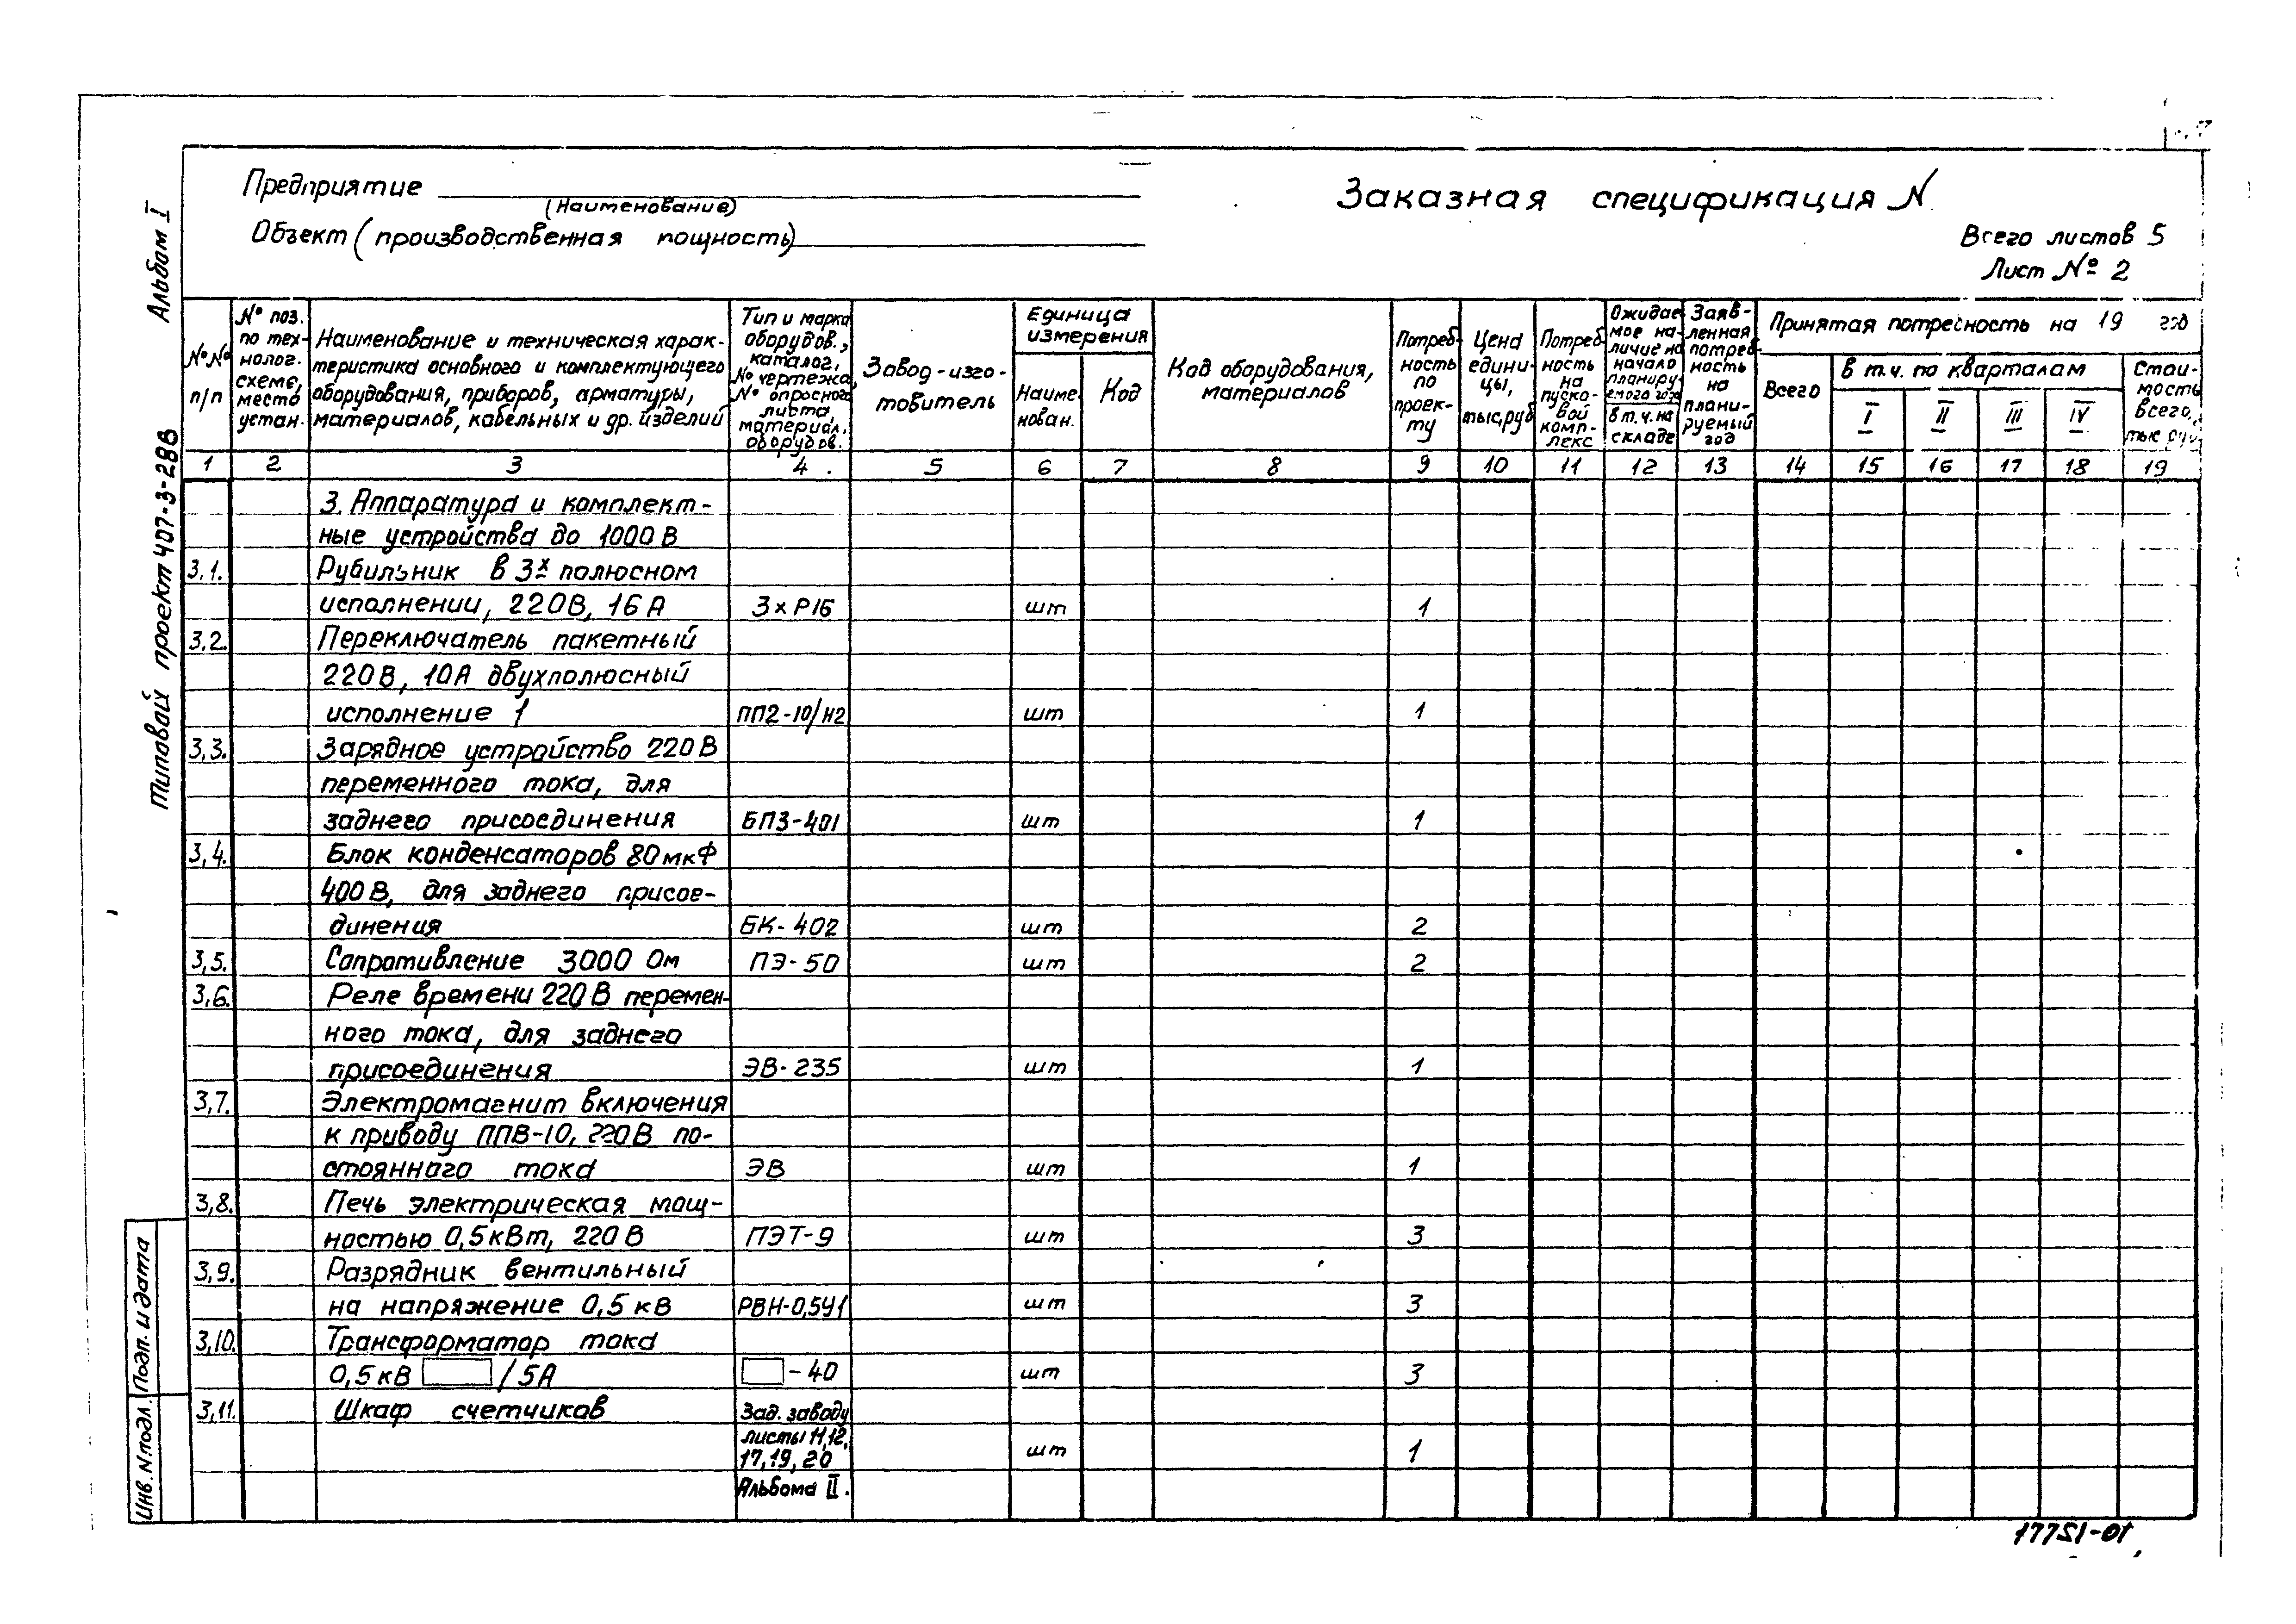 Предприятие
(Наименование)
Объект (производственная пощность)
Заказная спецификация N
Всего листов 5
Лист № 2
Альбом I
Типовой проект 407-3-288
№№ п/п
№ поз. по тех- нолог. схеме, место устан.
Наименование и техническая харак-
теристика основного и комплектующего
оборудования, приборов, арматуры,
материалов, кабельных и др. изделий
Тип и марка оборудов., каталог, № чертежа, № опросного листа, материал. оборудов.
Завод-изго-
товитель
Единица
измерения
Наиме-
нован.
Код
Код оборудования,
материалов
Потреб- ность по проек- ту
Цена едини- цы, тыс.руб
Потреб- ность на пуско- вой комп- лекс
Ожидае- мое на- личие на начало планиру- емого года
в т.ч. на складе
Заяв- ленная потреб- ность на плани- руемый год
Принятая потребность на 19 год
Всего
в т.ч. по кварталам
I II III IV
Стои- мость всего, тыс руб
1 2 3 4 5 6 7 8 9 10 11 12 13 14 15 16 17 18 19
3. Аппаратура и комплект-
ные устройства до 1000 В
3,1. Рубильник в 3х полюсном
исполнении, 220В, 16А 3хР16 шт 1
3,2. Переключатель пакетный
220В, 10А двухполюсный
исполнение 1 ПП2-10/Н2 шт 1
3,3. Зарядное устройство 220В
переменного тока, для
заднего присоединения БПЗ-401 шт 1
3,4. Блок конденсаторов 80мкФ
400В, для заднего присое-
динения БК-402 шт 2
3,5. Сопротивление 3000 Ом ПЭ-50 шт 2
3,6. Реле времени 220В перемен-
ного тока, для заднего
присоединения ЭВ-235 шт 1
3,7. Электромагнит включения
к приводу ППВ-10, 220В по-
стоянного тока ЭВ шт 1
3,8. Печь электрическая мощ-
ностью 0,5кВт, 220В ПЭТ-9 шт 3
3,9. Разрядник вентильный
на напряжение 0,5кВ РВН-0,5У1 шт 3
3,10. Трансформатор тока
0,5кВ /5А -40 шт 3
3,11. Шкаф счетчиков Зад. заводу
листы 11,12,
17,19,20 шт 1
Альбома II.
Подп. и дата
Инв. N подл.
17751-01